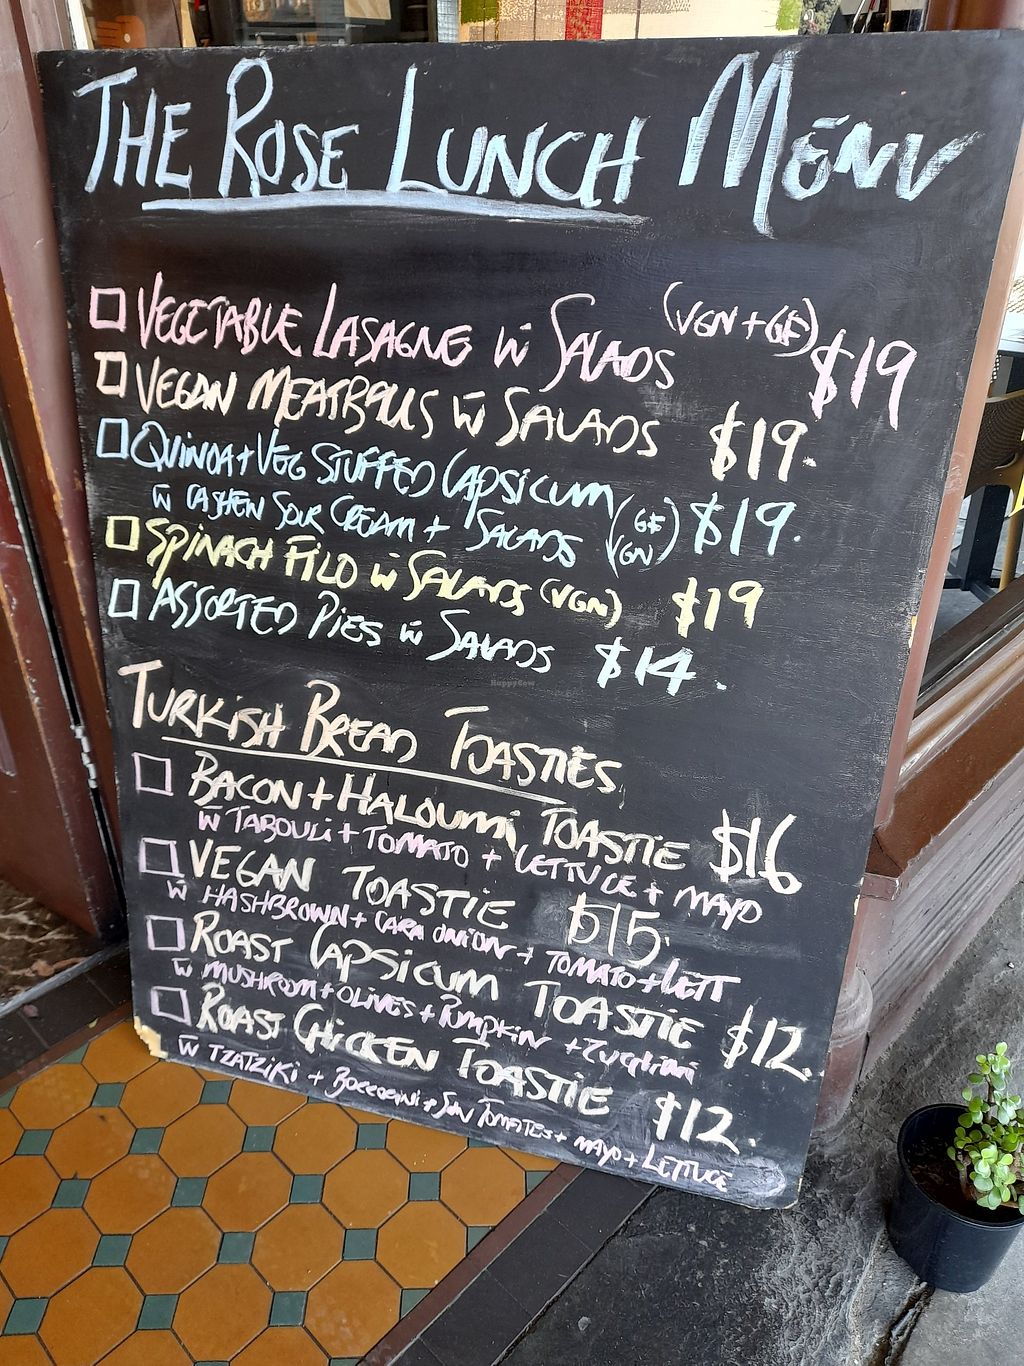 THE ROSE LUNCH MENU
VEGETABLE LASAGNE W SALADS (VGN + GF) $19
VEGAN MEATBALLS W SALADS $19.
QUINOA + VEG STUFFED CAPSICUM (GF VGN) $19.
W CASHEW SOUR CREAM + SALADS
SPINACH FILO W SALADS (VGN) $19
ASSORTED PIES W SALADS $14.
HappyCow
TURKISH BREAD TOASTIES
BACON + HALOUMI TOASTIE $16
W TABOULI + TOMATO + LETTUCE + MAYO
VEGAN TOASTIE $15.
W HASHBROWN + CARA ONION + TOMATO + LETT
ROAST CAPSICUM TOASTIE $12.
W MUSHROOM + OLIVES + PUMPKIN + ZUCCHINI
ROAST CHICKEN TOASTIE $12.
W TZATZIKI + BOCCOCINI + SUN TOMATES + MAYO + LETTUCE